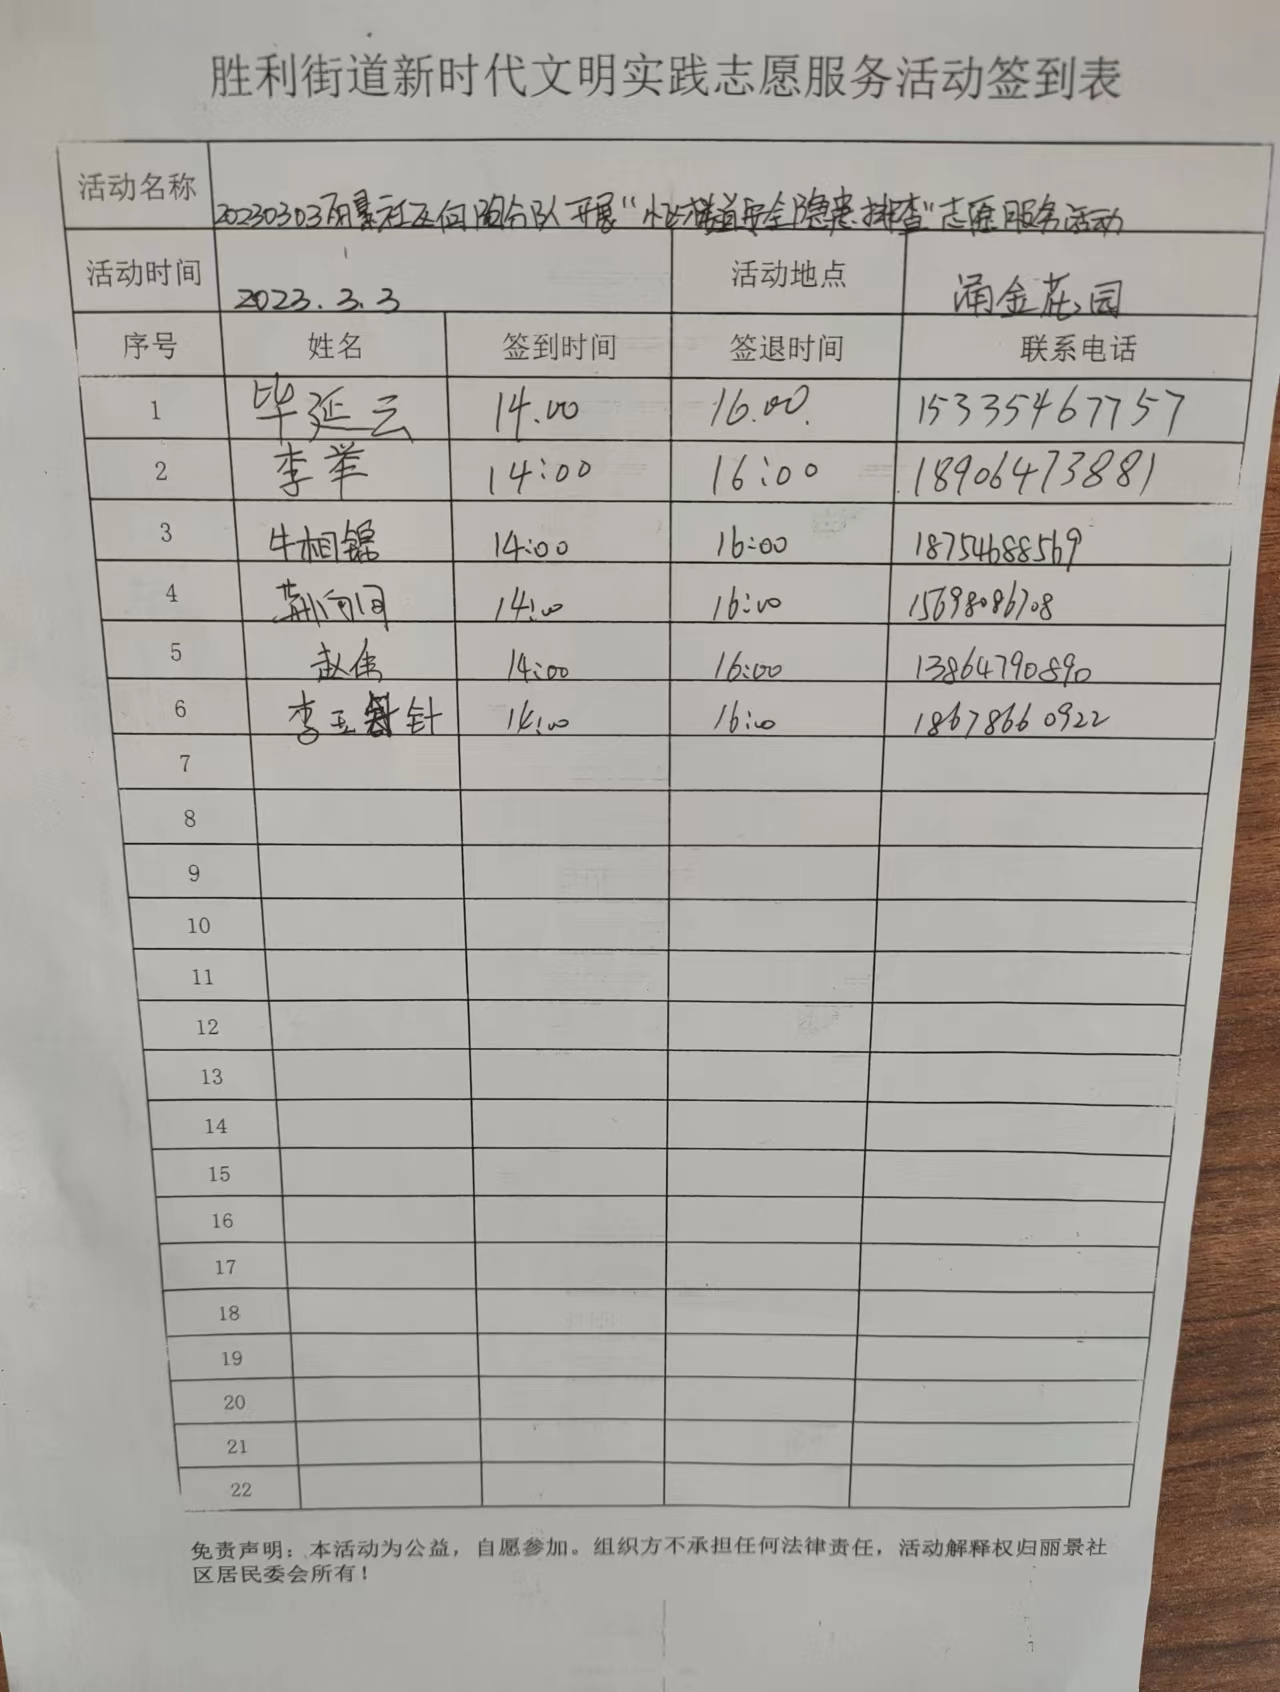 胜利街道新时代文明实践志愿服务活动签到表
活动名称 20230303丽景社区 分队开展“ 安全隐患排查”志愿服务活动
活动时间 2023.3.3 活动地点 涌金花园
序号 姓名 签到时间 签退时间 联系电话
1 毕延云 14.00 16.00. 15335467757
2 李举 14:00 16:00 18906473881
3 牛相锟 14:00 16:00 18754688569
4 14:00 16:00 15698086708
5 赵伟 14:00 16:00 13864790890
6 李玉 针 14:00 16:00 18678660922
7
8
9
10
11
12
13
14
15
16
17
18
19
20
21
22
免责声明：本活动为公益，自愿参加。组织方不承担任何法律责任，活动解释权归丽景社
区居民委会所有！